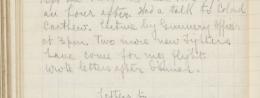 an hour after. Had a talk to Col and
Carthew. Lecture by Gunnery Officer
at 3pm. Two more new Fighters
have come for my flight
wrote letters after dinner.
Letters to